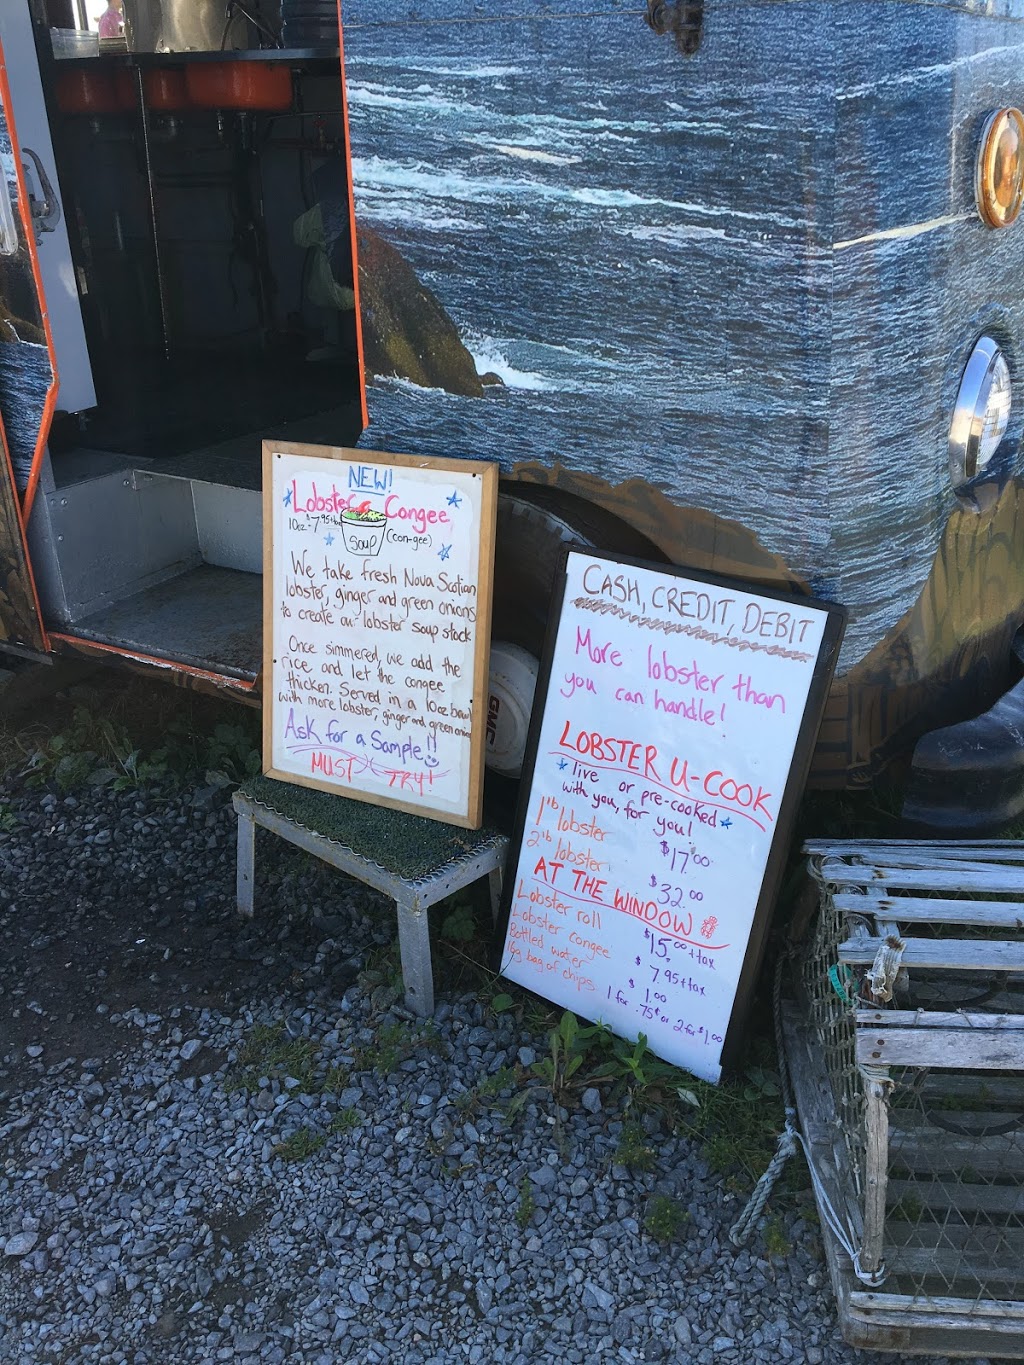 NEW!
Lobster Congee
10oz $7.95+tax
(con-gee)
Soup
We take fresh Nova Scotian
lobster, ginger and green onions
to create our lobster soup stock
Once simmered, we add the
rice and let the congee
thicken. Served in a 10oz bowl
with more lobster, ginger and green onion
Ask for a Sample!!
MUST TRY!
CASH, CREDIT, DEBIT
More lobster than
you can handle!
LOBSTER U-COOK
live or pre-cooked
with you, for you!
1lb lobster $17.00
2lb lobster $32.00
AT THE WINDOW
Lobster roll $15.00+tax
Lobster congee $7.95+tax
Bottled water $1.00
16g bag of chips 1 for .75¢ or 2 for $1.00
GMC